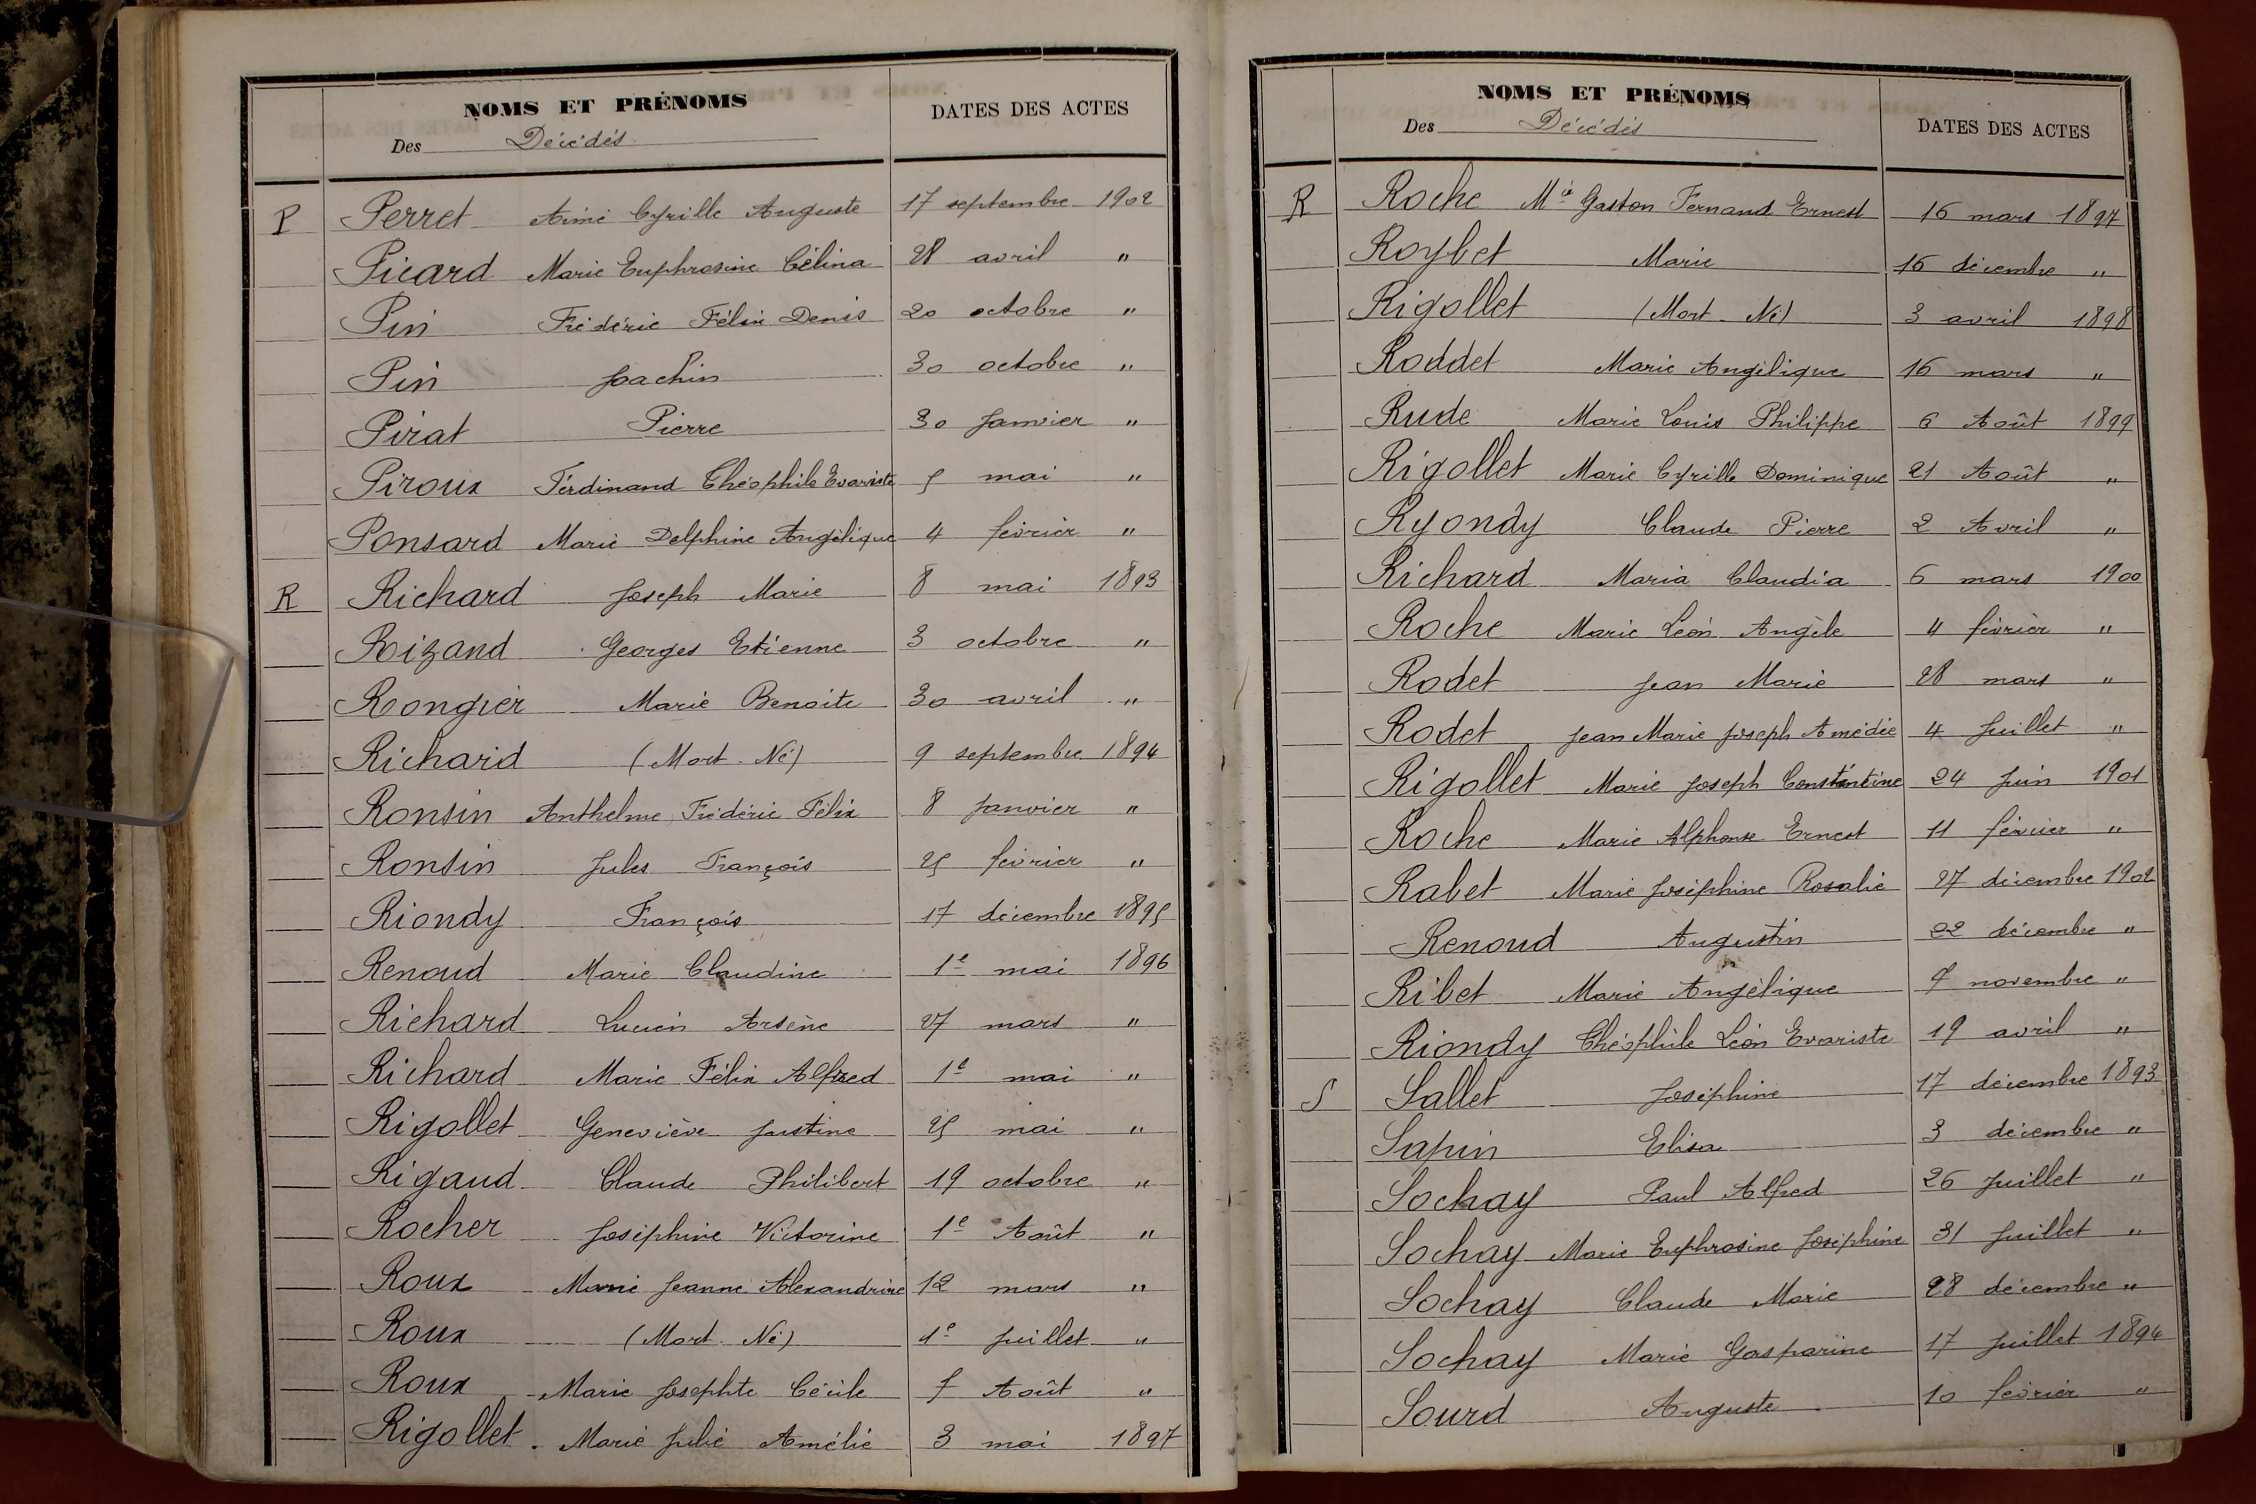 NOMS ET PRÉNOMS
Des Décédés
DATES DES ACTES
P Perret Aimé Cyrille Auguste 17 septembre 1902
Picard Marie Euphrosine Célina 28 avril "
Pin Frédéric Félix Denis 20 octobre "
Pin Joachin 30 octobre "
Pirat Pierre 30 Janvier "
Piroux Ferdinand Théophile Evariste 5 mai "
Ponsard Marie Delphine Angélique 4 février "
R Richard Joseph Marie 8 mai 1893
Rizand Georges Etienne 3 octobre "
Rongier Marie Benoite 30 avril "
Richard (Mort-Né) 9 septembre 1894
Ronsin Anthelme Frédéric Félix 8 Janvier "
Ronsin Jules François 25 février "
Riondy François 17 décembre 1895
Renoud Marie Claudine 1e mai 1896
Richard Lucien Arsène 27 mars "
Richard Marie Félix Alfred 1e mai "
Rigollet Geneviève Justine 25 mai "
Rigaud Claude Philibert 19 octobre "
Rocher Joséphine Victorine 1e Août "
Roux Marie Jeanne Alexandrine 12 mars "
Roux (Mort-Né) 1e Juillet "
Roux Marie Josephte Cécile 7 Août "
Rigollet Marie Julie Amélie 3 mai 1897
NOMS ET PRÉNOMS
Des Décédés
DATES DES ACTES
R Roche Mie Gaston Fernand Ernest 16 mars 1897
Roybet Marie 16 décembre "
Rigollet (Mort-Né) 3 avril 1898
Roddet Marie Angélique 16 mars "
Rude Marie Louis Philippe 6 Août 1899
Rigollet Marie Cyrille Dominique 21 Août "
Ryondy Claude Pierre 2 Avril "
Richard Maria Claudia 6 mars 1900
Roche Marie Léon Angèle 4 février "
Rodet Jean Marie 28 mars "
Rodet Jean Marie Joseph Amédée 4 Juillet "
Rigollet Marie Joseph Constantine 24 Juin 1901
Roche Marie Alphonse Ernest 11 février "
Rabet Marie Joséphine Rosalie 27 décembre 1902
Renoud Augustin 22 décembre "
Ribet Marie Angélique novembre "
Riondy Théophile Léon Evariste 19 avril "
S Sallet Joséphine 17 décembre 1893
Sapin Elisa 3 décembre "
Sochay Paul Alfred 26 Juillet "
Sochay Marie Euphrosine Joséphine 31 Juillet "
Sochay Claude Marie 28 décembre "
Sochay Marie Gasparine 17 Juillet 1894
Sourd Auguste 10 février "